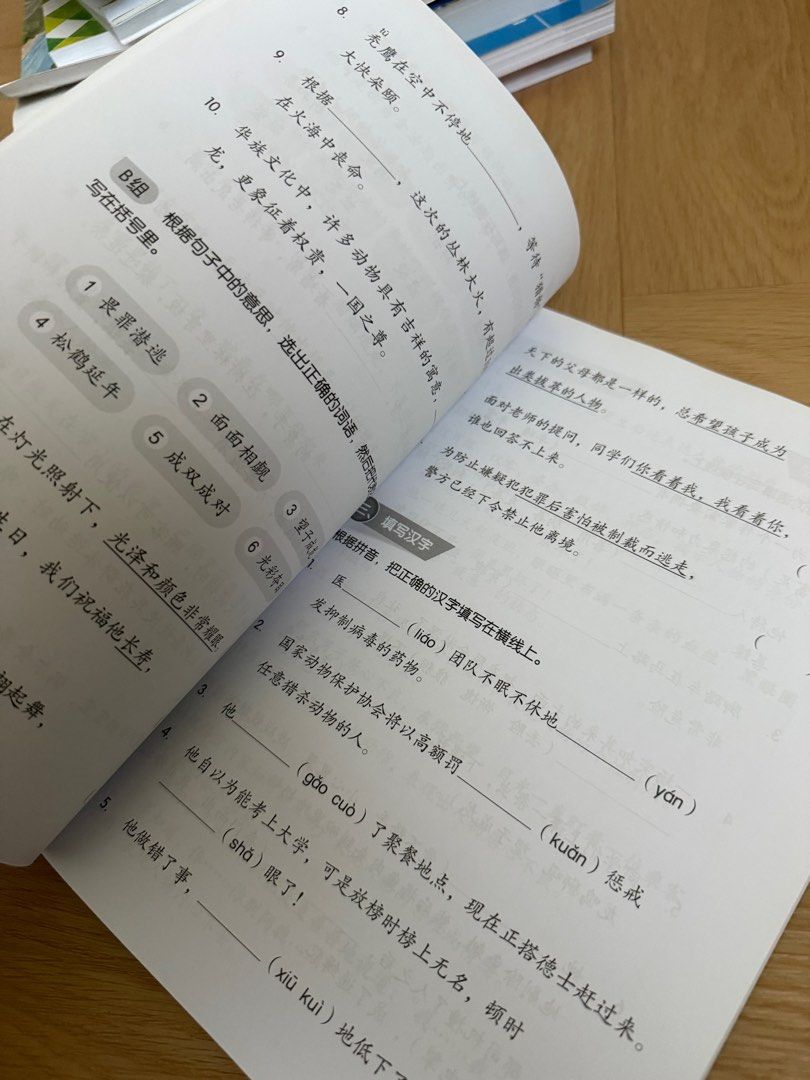 8. 秃鹰在空中不停地________，等待
大快朵颐。
9. 根据________，这次的丛林大火，有
在火海中丧命。
10. 华族文化中，许多动物具有吉祥的寓意，
龙，更象征着权贵，一国之尊。
B组 根据句子中的意思，选出正确的词语，然后把
写在括号里。
1 畏罪潜逃
2 面面相觑
3 望子成
4 松鹤延年
5 成双成对
6 光彩夺目
在灯光照射下，光泽和颜色非常耀眼
生日，我们祝福他长寿，
翩起舞，
天下的父母都是一样的，总希望孩子成为
出类拔萃的人物。
面对老师的提问，同学们你看着我，我看着你，
谁也回答不上来。
为防止嫌疑犯犯罪后害怕被制裁而逃走，
警方已经下令禁止他离境。
三、 填写汉字
根据拼音，把正确的汉字填写在横线上。
1. 医________（liáo）团队不眠不休地________（yán）
发抑制病毒的药物。
2. 国家动物保护协会将以高额罚________（kuǎn）惩戒
任意猎杀动物的人。
3. 他________（gǎo cuò）了聚餐地点，现在正搭德士赶过来。
4. 他自以为能考上大学，可是放榜时榜上无名，顿时
________（shǎ）眼了！
5. 他做错了事，________（xiū kuì）地低下了